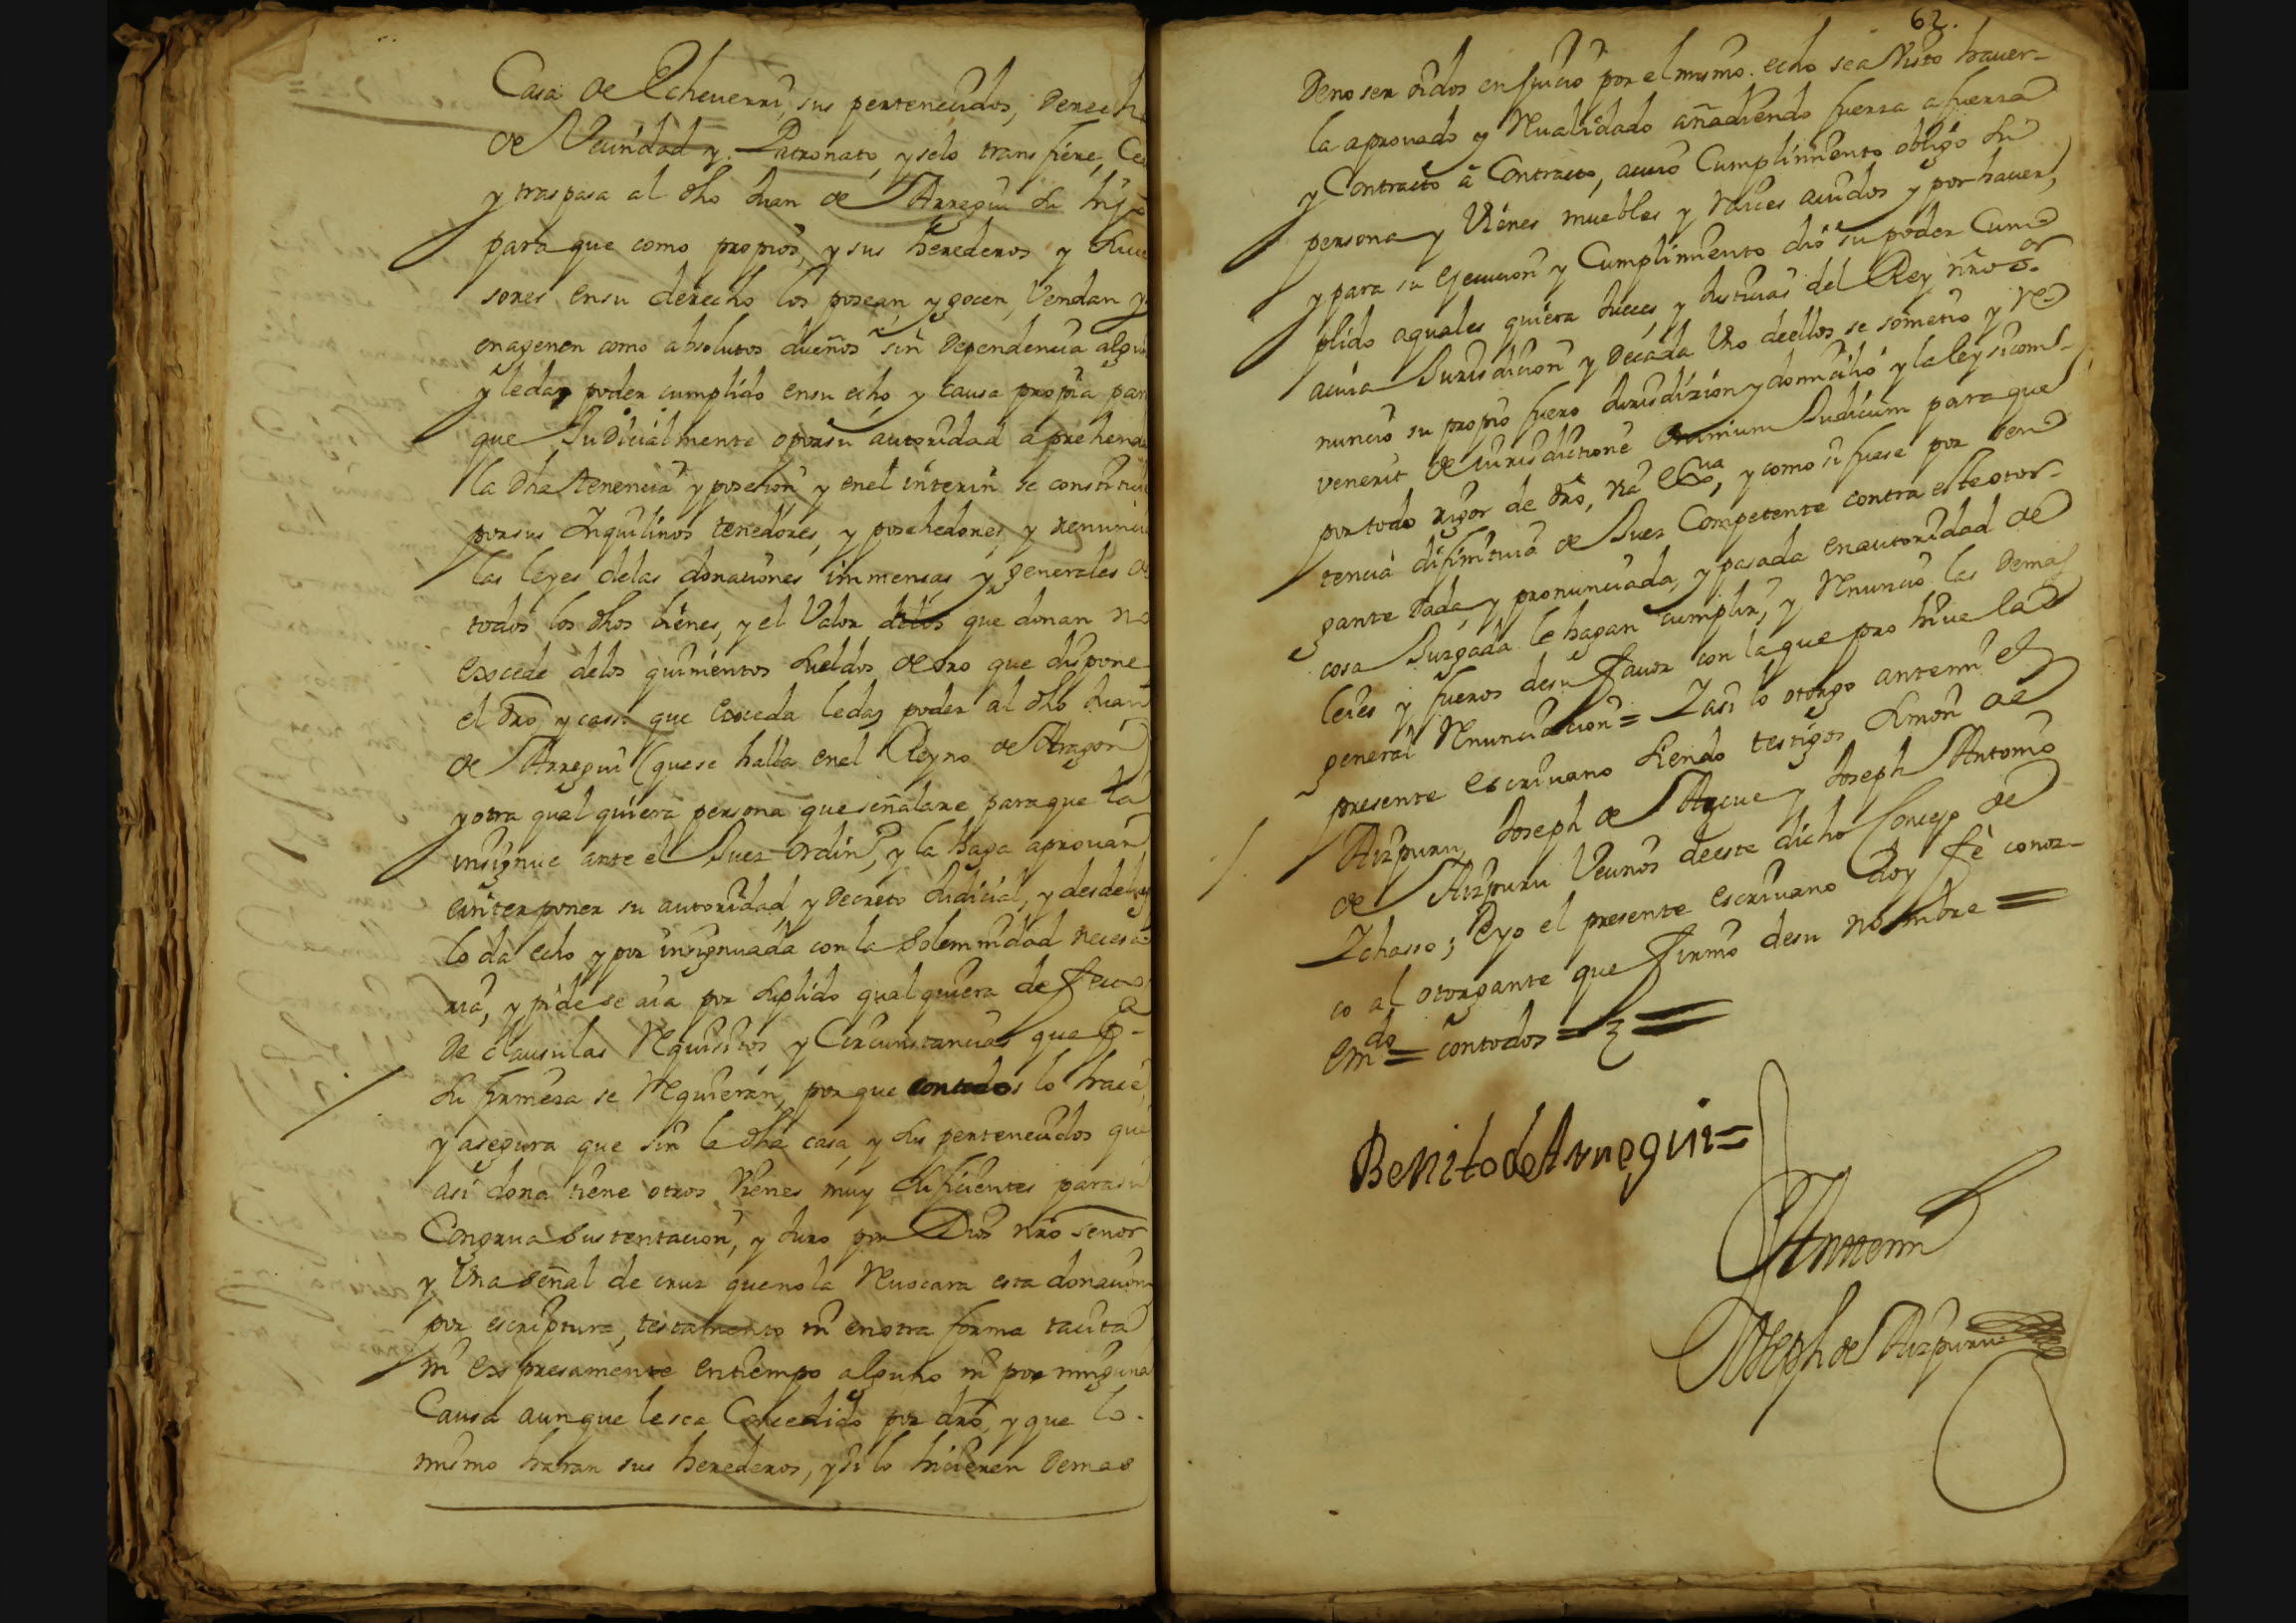 Casa de Echeuerri, sus pertenecidos, derech
de Vecindad y Patronato, y selo transfiere, Ce
y traspasa al dho Juan de Arregui su hijo
para que como propios, y sus herederos y suce
sores ensu derecho los posean, y gocen, Vendan y
enagenen como absolutos dueños sin dependencia algu
y leda poder cumplido ensu echo, y causa propia par
que Judicialmente o porsu autoridad aprehenda
la dha tenencia y posesion y enel interin se constitui
porsus Inquilinos tenedores, y poschedores, y renuncia
las leyes delas donaciones immensas y generales de
todos los dhos bienes, y el Valor delos que donan no
excede delos quinientos sueldos de oro que dispone
el dro, y casso que exceda leda poder al dho Juan
de Arregui (quese halla enel Reyno de Aragon)
y otra qual quiera persona que señalare paraque la
insignue ante el Juez ordin.º, y la haga aprouar
e interponer su autoridad y decreto Judicial, y desdeluego
lo da echo y por insignuada con la solemnidad necesa
ria, y pide se aia por suplido qual quiera defecto
de clausulas Requisitos y Circunstancias que pª
su firmeza se Requieran, por que contodos lo hace,
y asegura que sin la dha casa, y sus pertenecidos que
asi dona tiene otros Vienes muy suficientes parasu
Congrua sustentacion, y Juro por Dios nro señor
y Una señal de cruz quenola Reuocara esta donacion
por escriptura, testamento ni enotra forma tacita
ni expresamente entiempo alguno ni por ninguna
Causa aunque lesea Concedido por dro, y que lo
mismo haran sus herederos, y si lo hicieren demas
62.
Deno ser oidos en Juicio por el mismo echo sea Visto hauer-
la aprouado y Reualidado añadiendo fuerza a fuerza
y Contracto a Contracto, acuio Cumplimiento obligo su
persona y Vienes muebles y raices auidos y por hauer,
y para su ejecucion y Cumplimiento dio su poder Cum
plido aquales quiera Jueces, y Justicias del Rey nro sor
acuia Jurisdicion y decada Vno deellos se sometio y re
nuncio su propio fuero Jurisdizion y domicilio y la ley sicom-
venerit de iurisdictione Omnium Judicum paraque
por todo rigor de dro, via exua, y como si fuese por sen
tencia difinitiua de Juez Competente contra este otor-
gante dada, y pronunciada, y pasada enautoridad de
cosa Juzgada le hagan cumplir, y Renuncio las demas
leies y fueros desu fauor con la que pro hiue la
general Renunciacion = I asi lo otorgo antemi el
presente escriuano siendo testigos Simon de
Aizpuru, Joseph de Azcue y Joseph Antonio
de Aizpuru Vecinos deeste dicho Concejo de
Ichasso; Eyo el presente escriuano doy fè conoz-
co al otorgante que firmo desu nombre =
Emdo = contodos =
Benito de Arregui =
Antemi
Joseph de Aizpuru